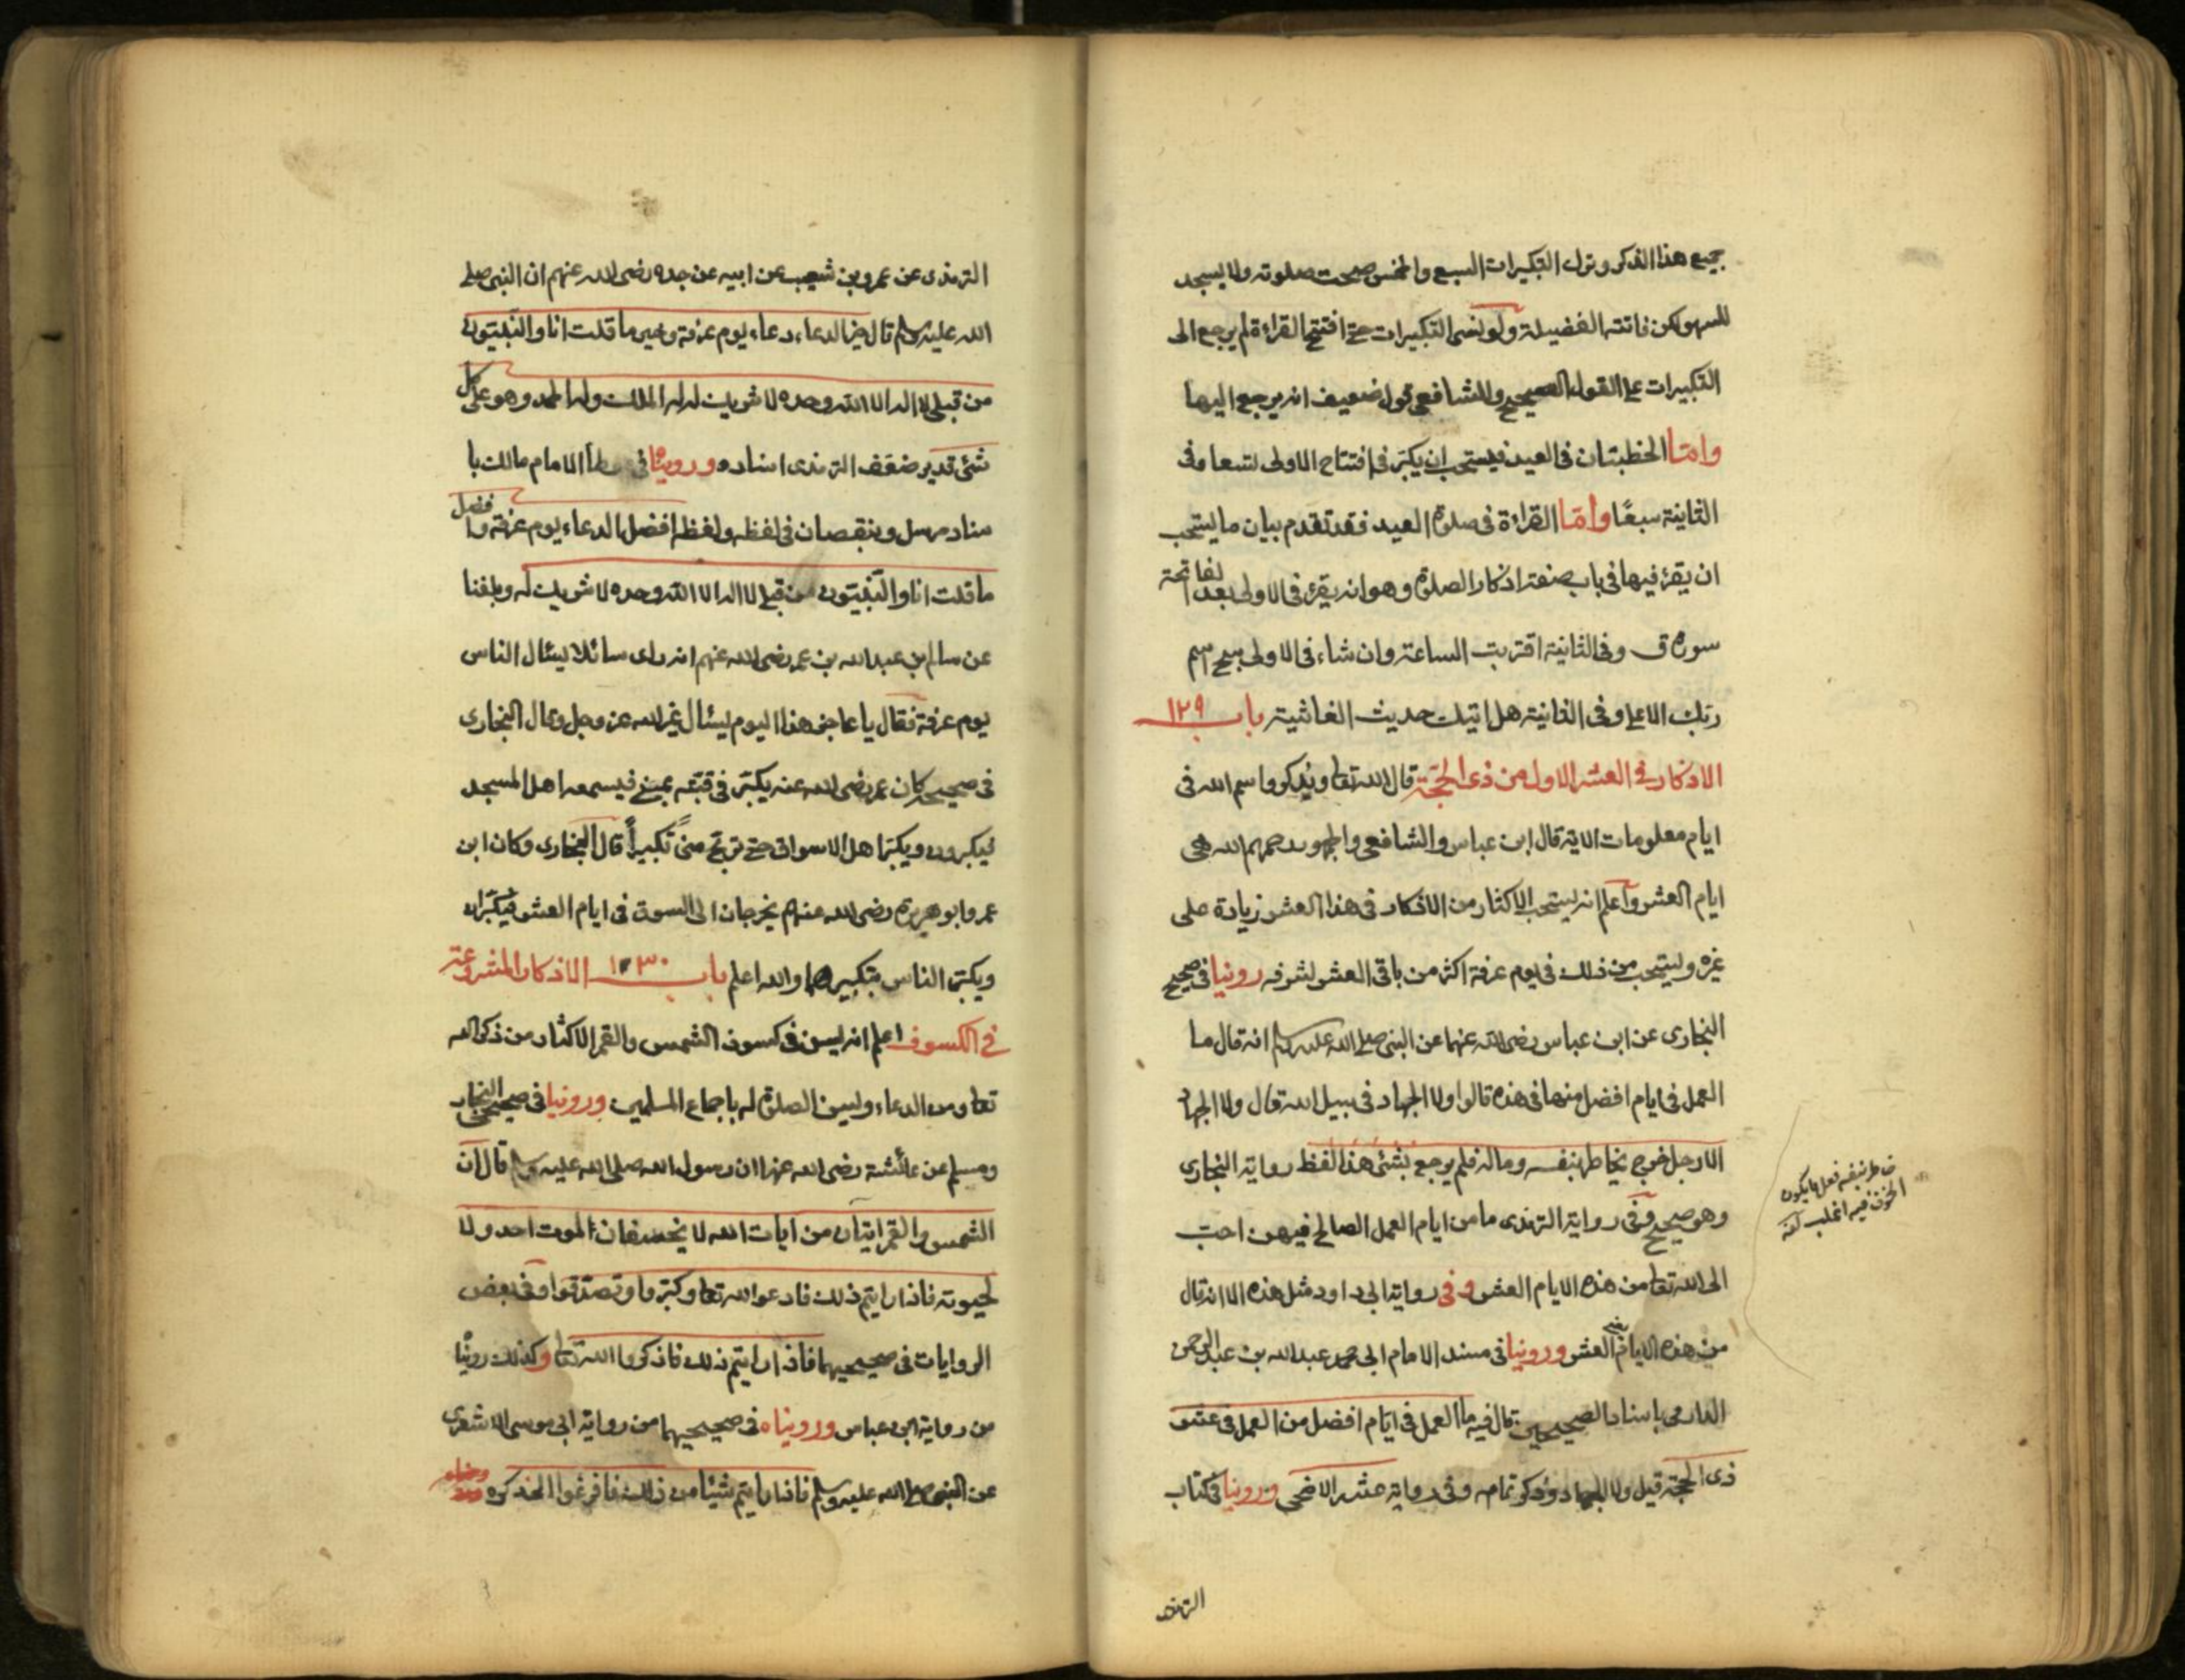 جميع هذا الذكر وترك التكبيرات السبع والخمس صحت صلوته ولا يسجد
للسهو لكن فاتته الفضيلة ولو نسى التكبيرات حتى افتتح القراءة لم يرجع الى
التكبيرات على القول الصحيح وللشافعى قول ضعيف انه يرجع اليها
وامّا الخطبتان فى العيد فيستحب ان يكبّر فى افتتاح الاولى تسعا وفى
الثانية سبعًا وأمّا القراءة فى صلوة العيد فقد تقدم بيان ما يستحب
ان يقرء فيها فى باب صفة اذكار الصلوة وهو انه يقرء فى الاولى بعد الفاتحة
سورة ق وفى الثانية اقتربت الساعة وان شاء فى الاولى سبح اسم
ربّك الاعلى وفى الثانية هل اتيك حديث الغاشية باب ١٢٩
الاذكار فى العشر الاول من ذى الحجّة قال الله تعا ويذكروا اسم الله فى
ايام معلومات الاية قال ابن عباس والشافعى والجمهور رحمهم الله هى
ايام العشر وأعلم انه يستحب الاكثار من الاذكار فى هذا العشر زيادة على
غيره ويستحب من ذلك فى يوم عرفة اكثر من باقى العشر لشرفه روينا فى صحيح
البخارى عن ابن عباس رضى الله عنهما عن النبى صلى الله عليه وسلم انه قال ما
العمل فى ايام افضل منها فى هذه قالوا ولا الجهاد فى سبيل الله قال ولا الجهاد
الا رجل خرج يخاطر بنفسه وماله فلم يرجع بشئ هذا لفظ رواية البخارى
وهو صحيح وفى رواية الترمذى ما من ايام العمل الصالح فيهن احبّ
الى الله تعا من هذه الايام العشر وفى رواية ابى داود مثل هذه الا انه قال
من هذه الايام يعنى العشر وروينا فى مسند الامام ابى محمد عبد الله بن عبد الرحمن
الدارمى باسناد الصحيحين قال فيه ما العمل فى ايّام افضل من العمل فى عشر
ذى الحجّة قيل ولا الجهاد وذكر تمامه وفى رواية عشر الاضحى وروينا فى كتاب
خاطر بنفسه فعل ما يكون
الخوف فيه اغلب
الترمذى
الترمذى عن عمرو بن شعيب عن ابيه عن جده رضى الله عنهم ان النبى صلى
الله عليه وسلم قال خير الدعاء دعاء يوم عرفة وخير ما قلت انا والنّبيّون
من قبلى لا اله الا الله وحده لا شريك له له الملك وله الحمد وهو على كل
شئ قدير ضعّف الترمذى اسناده ورويناه فى موطأ الامام مالك با
سناد مرسل وبنقصان فى لفظه ولفظه افضل الدعاء يوم عرفة وافضل
ما قلت انا والنّبيّون من قبلى لا اله الا الله وحده لا شريك له وبلغنا
عن سالم بن عبد الله بن عمر رضى الله عنهم انه راى سائلا يسئال الناس
يوم عرفة فقال يا عاجز هذا اليوم يسئال غير الله عز وجل وقال البخارى
فى صحيحه كان عمر رضى الله عنه يكبّر فى قبّته بمنى فيسمعه اهل المسجد
فيكبرون ويكبّر اهل الاسواق حتى ترتجّ منىً تكبيراً قال البخارى وكان ابن
عمر وابو هريرة رضى الله عنهم يخرجان الى السوق فى ايام العشر فيكبّران
ويكبّر الناس بتكبيرهما والله اعلم باب ١٣٠ الاذكار المشروعة
فى الكسوف اعلم انه ليسن فى كسوف الشمس والقمر الاكثار من ذكر الله
تعا ومن الدعاء وليسن الصلوة له باجماع المسلمين وروينا فى صحيحى البخارى
ومسلم عن عائشة رضى الله عنها ان رسول الله صلى الله عليه وسلم قال ان
الشمس والقمر ايتان من ايات الله لا يخسفان لموت احد ولا
لحيوته فاذا رايتم ذلك فادعوا الله تعا وكبّروا وتصدّقوا وفى بعض
الروايات فى صحيحيهما فاذا رايتم ذلك فاذكروا الله تعا وكذلك روينا
من رواية ابن عباس ورويناه فى صحيحيهما من رواية ابى موسى الاشعرى
عن النبى صلى الله عليه وسلم فاذا رايتم شيئا من ذلك فافزعوا الى ذكره